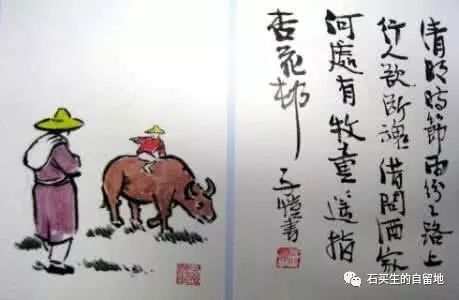 清明時節雨紛々路上
行人欲斷魂借問酒家
何處有牧童遙指
杏花村
子愷書
石买生的自留地